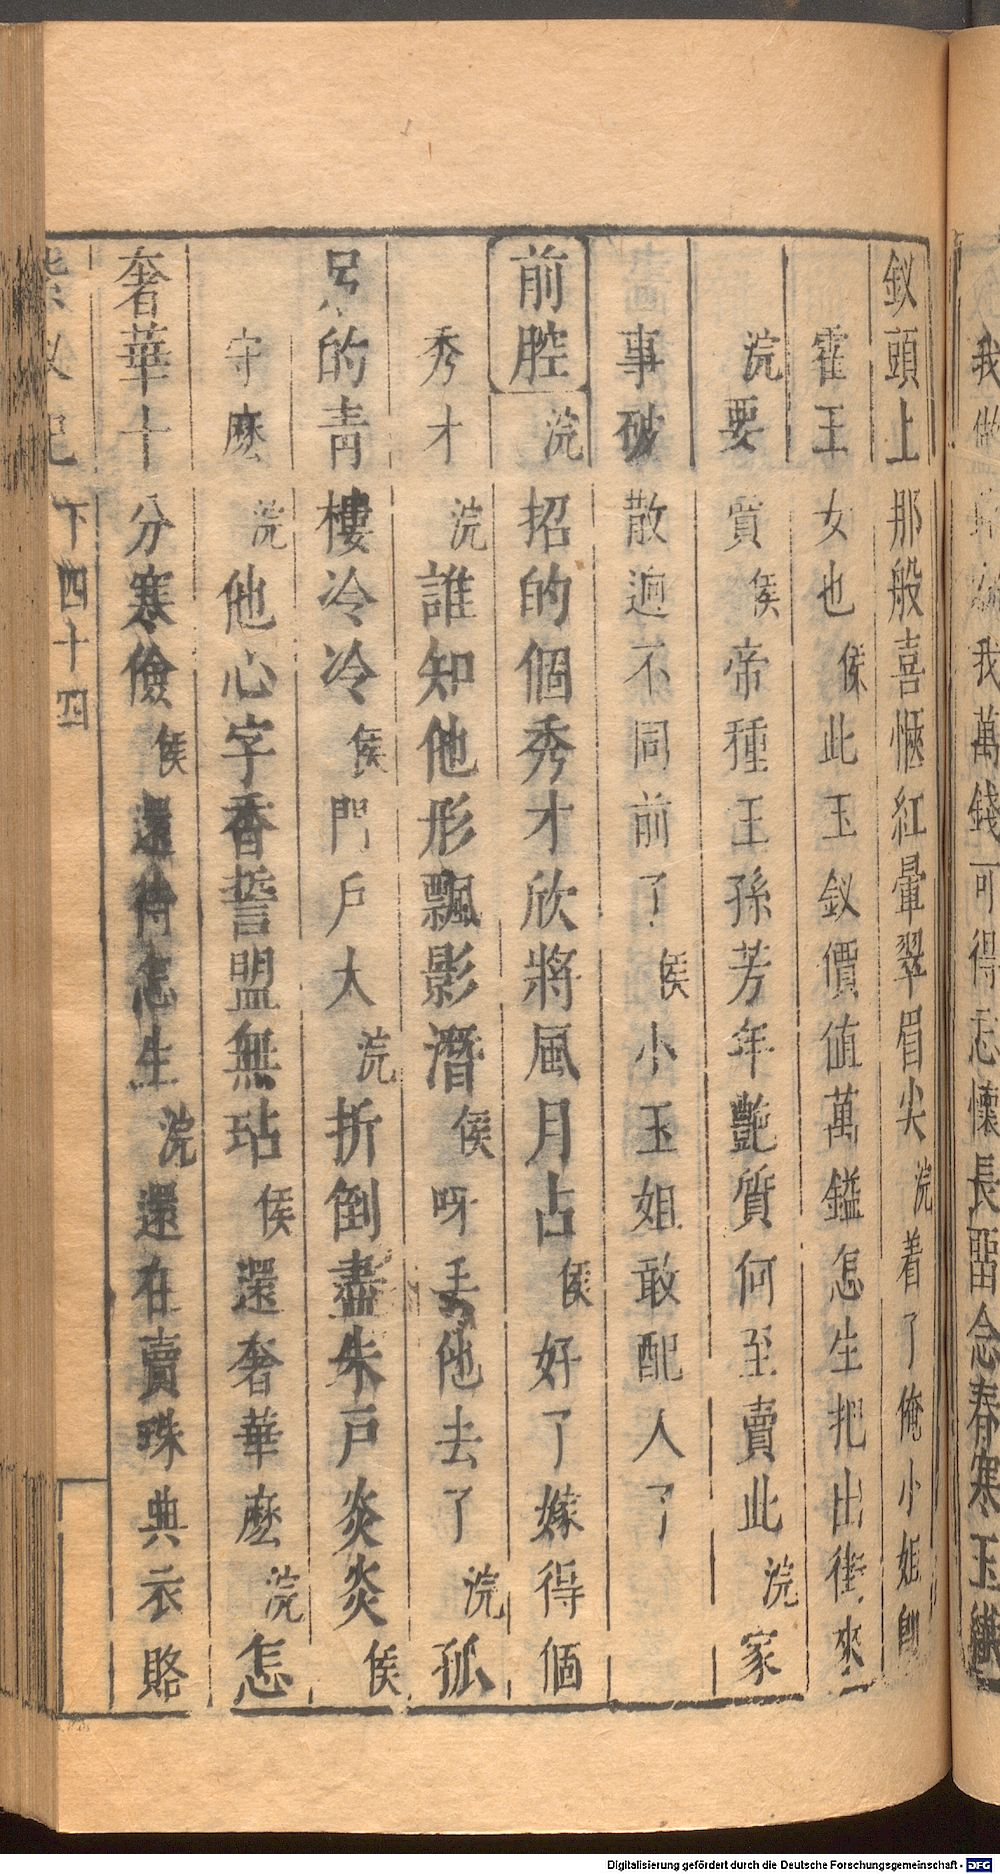 釵頭上那般喜愜紅暈翠眉尖浣着了俺小姐卽
霍王女也侯此玉釵價值萬鎰怎生把出街來
浣要質侯帝種王孫芳年艷質何至賣此浣家
事破散迥不同前了侯小玉姐敢配人了
前腔浣招的個秀才欣將風月占侯好了嫁得個
秀才浣誰知他形飄影潛侯呀丟他去了浣孤
另的青樓冷冷侯門戶大浣折倒盡朱戶炎炎侯
守麼浣他心字香誓盟無玷侯還奢華麼浣怎
奢華十分寒儉侯還待怎生浣還在賣珠典衣賂
紫釵記 下 四十四
我萬錢可得 懷長留念春寒玉
Digitalisierung gefördert durch die Deutsche Forschungsgemeinschaft - DFG